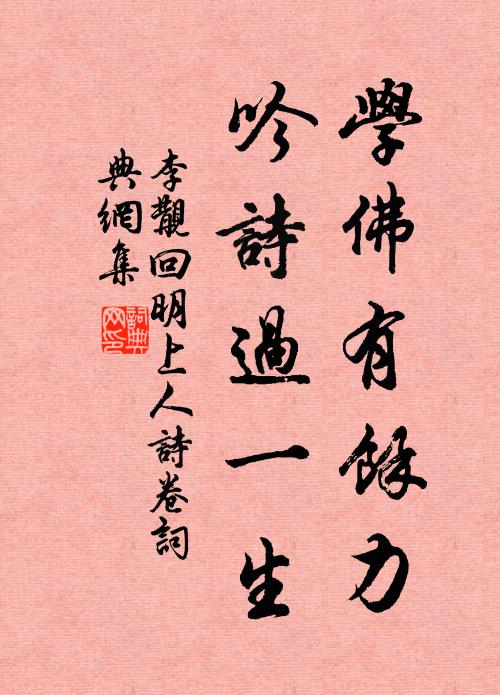 學佛有餘力
吟詩過一生
李覯回明上人詩卷詞
典網集
詞典
网印